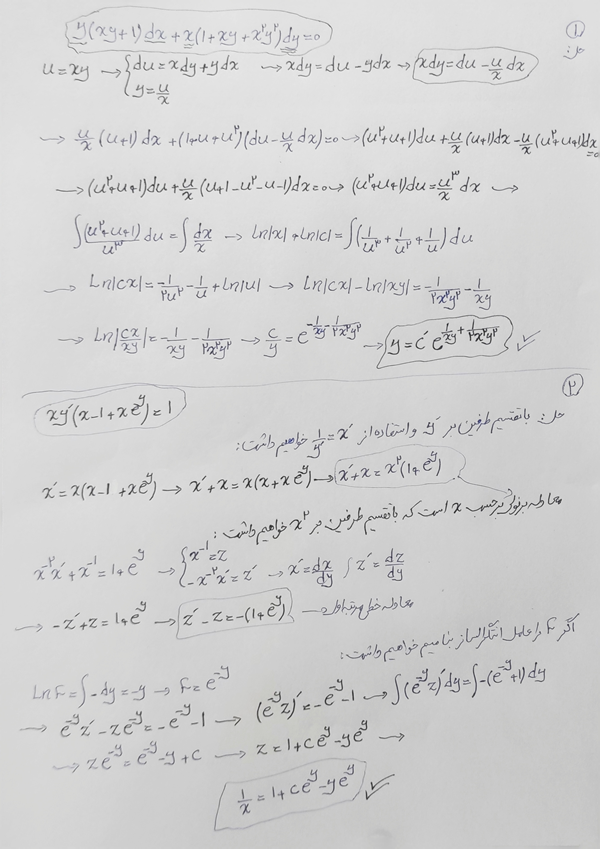 ①
y(xy+1)dx + x(1+xy+x²y²)dy = 0
حل:
u = xy → { du = xdy + ydx , y = u/x → xdy = du - ydx → xdy = du - u/x dx
→ u/x (u+1)dx + (1+u+u²)(du - u/x dx) = 0 → (u²+u+1)du + u/x (u+1)dx - u/x (u²+u+1)dx = 0
→ (u²+u+1)du + u/x (u+1-u²-u-1)dx = 0 → (u²+u+1)du = u³/x dx →
∫ (u²+u+1)/u³ du = ∫ dx/x → Ln|x| + Ln|c| = ∫ (1/u³ + 1/u² + 1/u) du
→ Ln|cx| = -1/۲u² - 1/u + Ln|u| → Ln|cx| - Ln|xy| = -1/۲x²y² - 1/xy
→ Ln|cx/xy| = -1/xy - 1/۲x²y² → c/y = e^(-1/xy - 1/۲x²y²) → y = c′ e^(1/xy + 1/۲x²y²) ✓
②
xy′(x-1+xe^y) = 1
حل: با تقسیم طرفین بر y′ و استفاده از 1/y′ = x′ خواهیم داشت:
x′ = x(x-1+xe^y) → x′+x = x(x+xe^y) → x′+x = x²(1+e^y)
معادله برنولی برحسب x است که با تقسیم طرفین بر x² خواهیم داشت:
x^-۲ x′ + x^-1 = 1+e^y → { x^-1 = z , -x^-۲ x′ = z′ → x′ = dx/dy , z′ = dz/dy
→ -z′+z = 1+e^y → z′-z = -(1+e^y) → معادله خطی مرتبه اول
اگر F را عامل انتگرال ساز بنامیم خواهیم داشت:
Ln F = ∫-dy = -y → F = e^-y
→ e^-y z′ - ze^-y = -e^-y - 1 → (e^-y z)′ = -e^-y - 1 → ∫(e^-y z)′dy = ∫-(e^-y+1)dy
→ ze^-y = e^-y - y + c → z = 1+ce^y - ye^y →
1/x = 1+ce^y - ye^y ✓